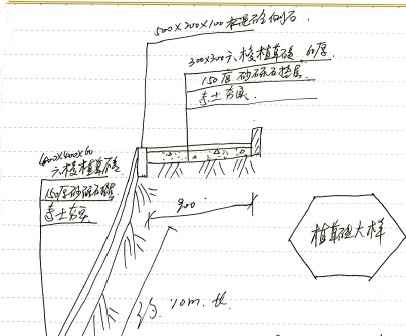 500×200×100本混砼侧石.
300×300六棱植草砖 60厚
150厚砂砾石垫层
素土夯实.
400×400×60
六棱植草砖
150厚砂砾石垫层
素土夯实
900
植草砖大样
10m. 长